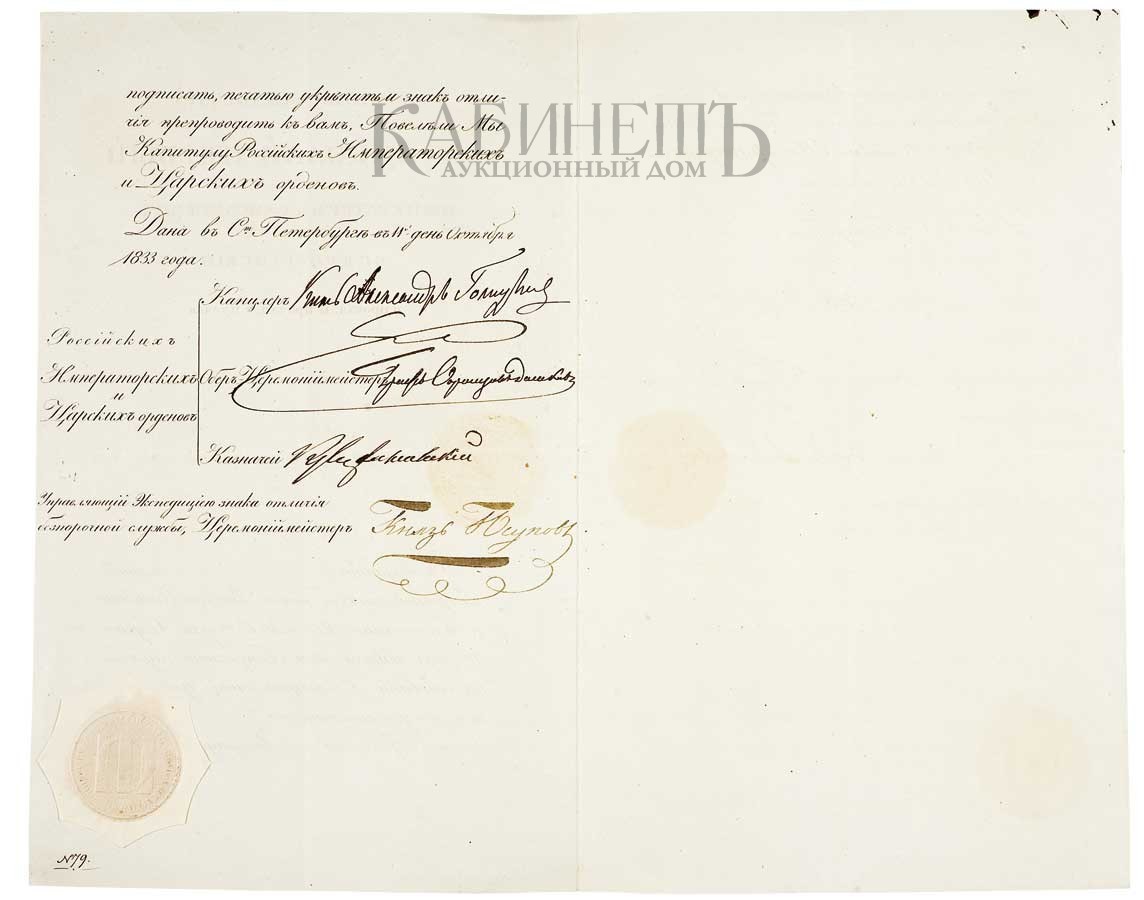 подписать, печатью укрѣпить и знакъ отли-
чія препроводить къ вамъ, Повелѣли Мы
Капитулу Россійскихъ Императорскихъ
и Царскихъ орденовъ.
КАБИНЕТЪ
АУКЦИОННЫЙ ДОМ
Дана въ С. Петербургѣ въ день Октября
1833 года.
Канцлеръ Князь Александръ Голицынъ
Россійскихъ
Императорскихъ
и
Царскихъ орденовъ
Оберъ Церемоніймейстеръ Графъ Воронцовъ Дашковъ
Казначей
Управляющій Экспедиціею знака отличія
безпорочной службы, Церемоніймейстеръ Князь Юсуповъ
№79.